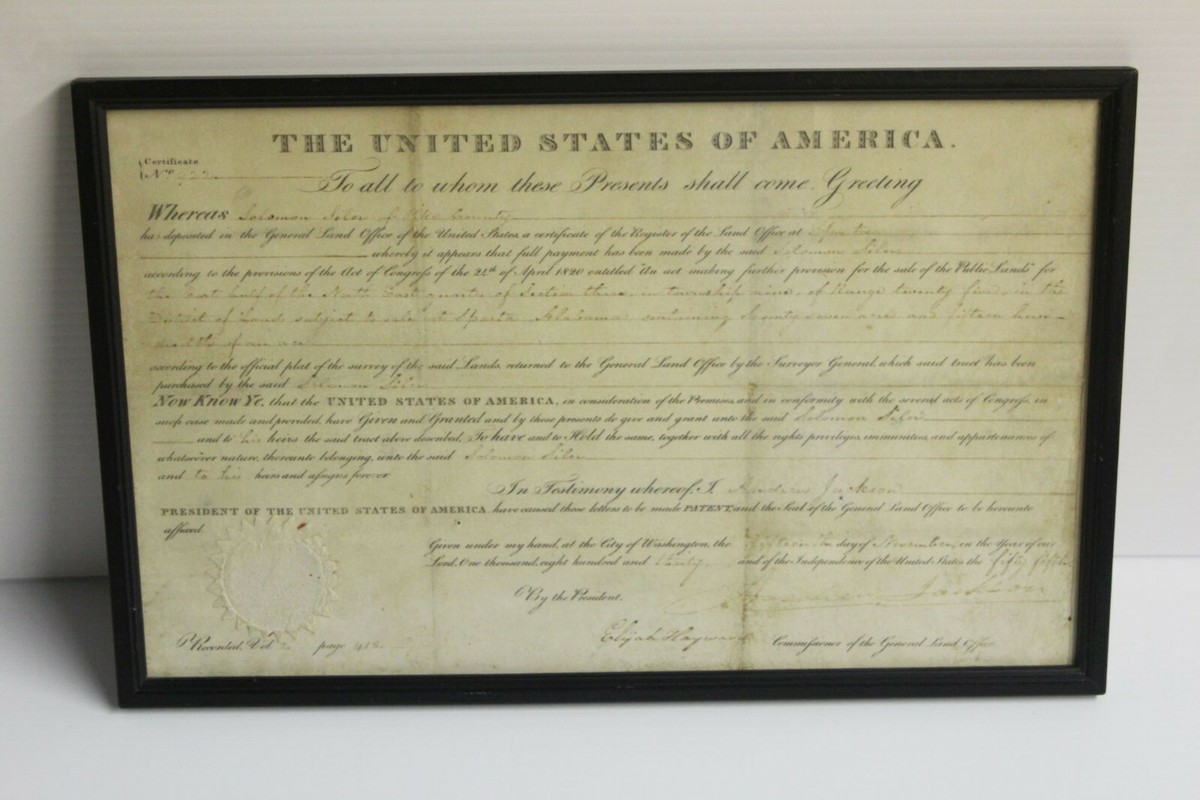 THE UNITED STATES OF AMERICA.
Certificate
No. 922
To all to whom these Presents shall come, Greeting
Whereas Solomon Siler of Pike County
has deposited in the General Land Office of the United States, a certificate of the Register of the Land Office at Sparta
whereby it appears that full payment has been made by the said Solomon Siler
according to the provisions of the Act of Congress of the 24th of April 1820 entitled "An act making further provision for the sale of the Public Lands" for
the East half of the North East quarter of Section three, in township nine, of Range twenty five, in the
District of Lands subject to sale at Sparta Alabama containing seventy seven acres and fifteen hun-
dredths of an acre
according to the official plat of the survey of the said Lands, returned to the General Land Office by the Surveyor General, which said tract has been
purchased by the said Solomon Siler
Now Know Ye, that the UNITED STATES OF AMERICA, in consideration of the Premises, and in conformity with the several acts of Congress, in
such case made and provided, have Given and Granted and by these presents do give and grant unto the said Solomon Siler
and to his heirs the said tract above described, To have and to Hold the same, together with all the rights privileges, immunities, and appurtenances of
whatsoever nature, thereunto belonging, unto the said Solomon Siler
and to his heirs and assigns forever
In Testimony whereof, I Andrew Jackson
PRESIDENT OF THE UNITED STATES OF AMERICA, have caused these letters to be made PATENT, and the Seal of the General Land Office to be hereunto
affixed.
Given under my hand, at the City of Washington, the day of November in the Year of our
Lord, One thousand, eight hundred and thirty and of the Independence of the United States the fifty fifth
By the President. Andrew Jackson
Elijah Hayward Commissioner of the General Land Office
Recorded, Vol 2 page 418